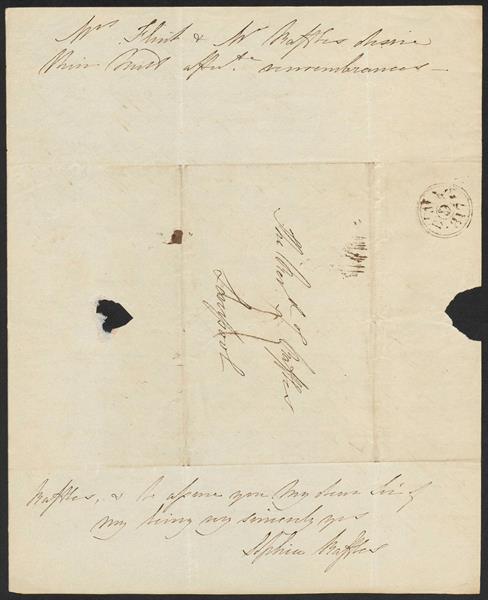 Mrs. Flint & Mr Raffles desire
their kind affecte. remembrances—
The Revd
Raffles
Liverpool
Raffles, & to assure you My dear Sir of
my being very sincerely yrs
Sophia Raffles